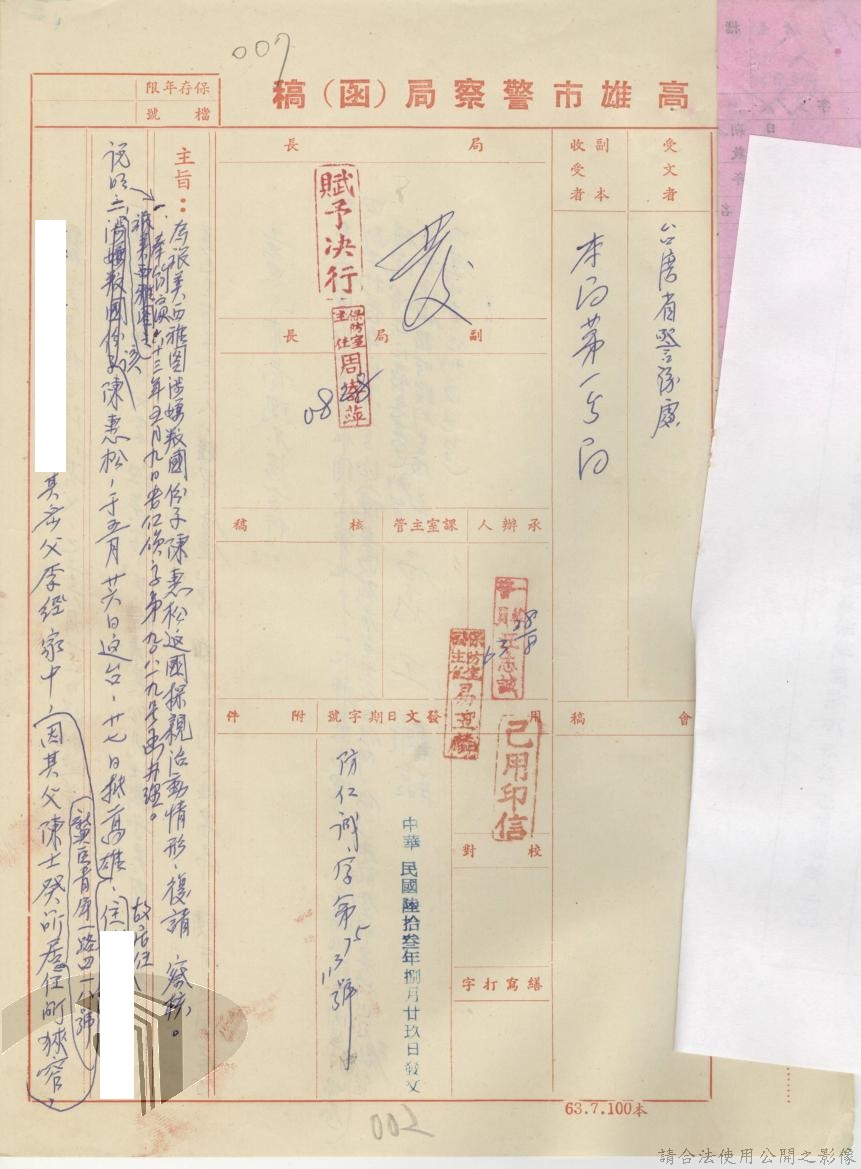 007
高雄市警察局（函）稿
保存年限
檔號
受文者
台灣省警務處
副本收受者
本局第一分局
局長
發
賦予決行
副局長
保防室主任周
08 28
承辦人
課室主管
核稿
28/8
63
會稿
用
已用印信
發文日期字號
附件
中華民國陸拾叁年捌月廿玖日發文
防仁誠字第
號
校對
繕寫打字
主旨：為旅美西雅圖涉嫌叛國份子陳惠松返國探親活動情形，復請 察核。
一、奉鈞處六十三年五月九日安仁偵字第九〇八一九號函辦理。
說明二、涉嫌叛國份子陳惠松，于五月廿六日返台，廿七日抵高雄，住
旅美西雅圖之
該
故居住
其岳父李經家中，因其父陳士發所居住所狹窄，
青年一路四一八號
002
63.7.100本
請合法使用公開之影像